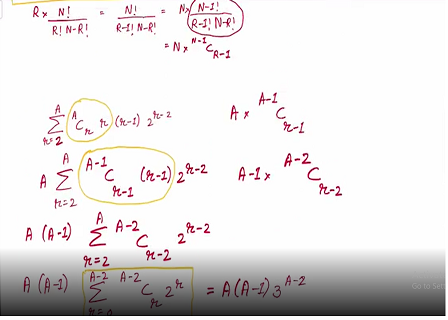 R × N!/R! N-R! = N!/R-1! N-R! = N× N-1!/R-1! N-R!
= N × ᴺ⁻¹C_R-1
A∑r=2 ᴬC_r r (r-1) 2^r-2
A × ᴬ⁻¹C_r-1
A A∑r=2 ᴬ⁻¹C_r-1 (r-1) 2^r-2
A-1 × ᴬ⁻²C_r-2
A (A-1) A∑r=2 ᴬ⁻²C_r-2 2^r-2
A (A-1) A-2∑r=0 ᴬ⁻²C_r 2^r = A(A-1) 3^A-2